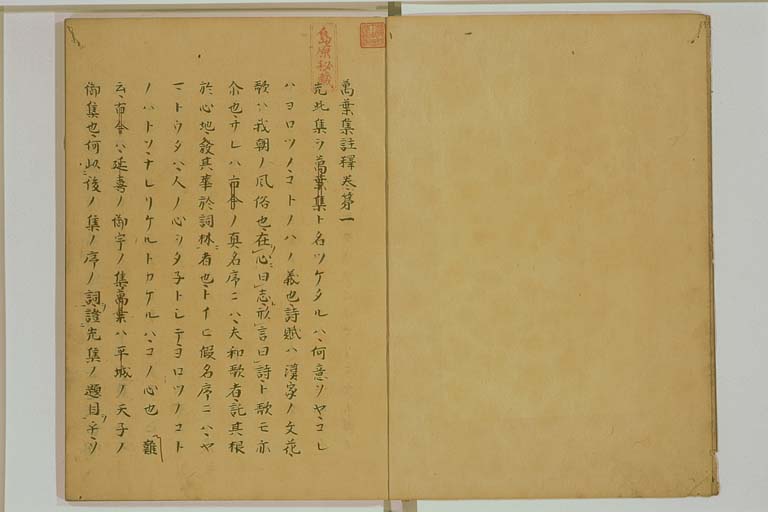 萬葉集註釋卷第一
先此集ヲ萬葉集ト名ツケタルハ何意ソヤコレ
ハヨロツノコトノハノ義也詩賦ハ漢家ノ文花
歌ハ我朝ノ風俗也在心曰志形言曰詩ト歌モ亦
介也サレハ古今ノ真名序ニハ夫和歌者託其根
於心地發其華於詞林者也トイヒ假名序ニハヤ
マトウタハ人ノ心ヲタ子トシテヨロツノコト
ノハトソナレリケルトカケルハコノ心也 難
云古今ハ延喜ノ御宇ノ集萬葉ハ平城ノ天子ノ
御集也何以後ノ集ノ序ノ詞證先集ノ題目乎ソ
島原秘蔵